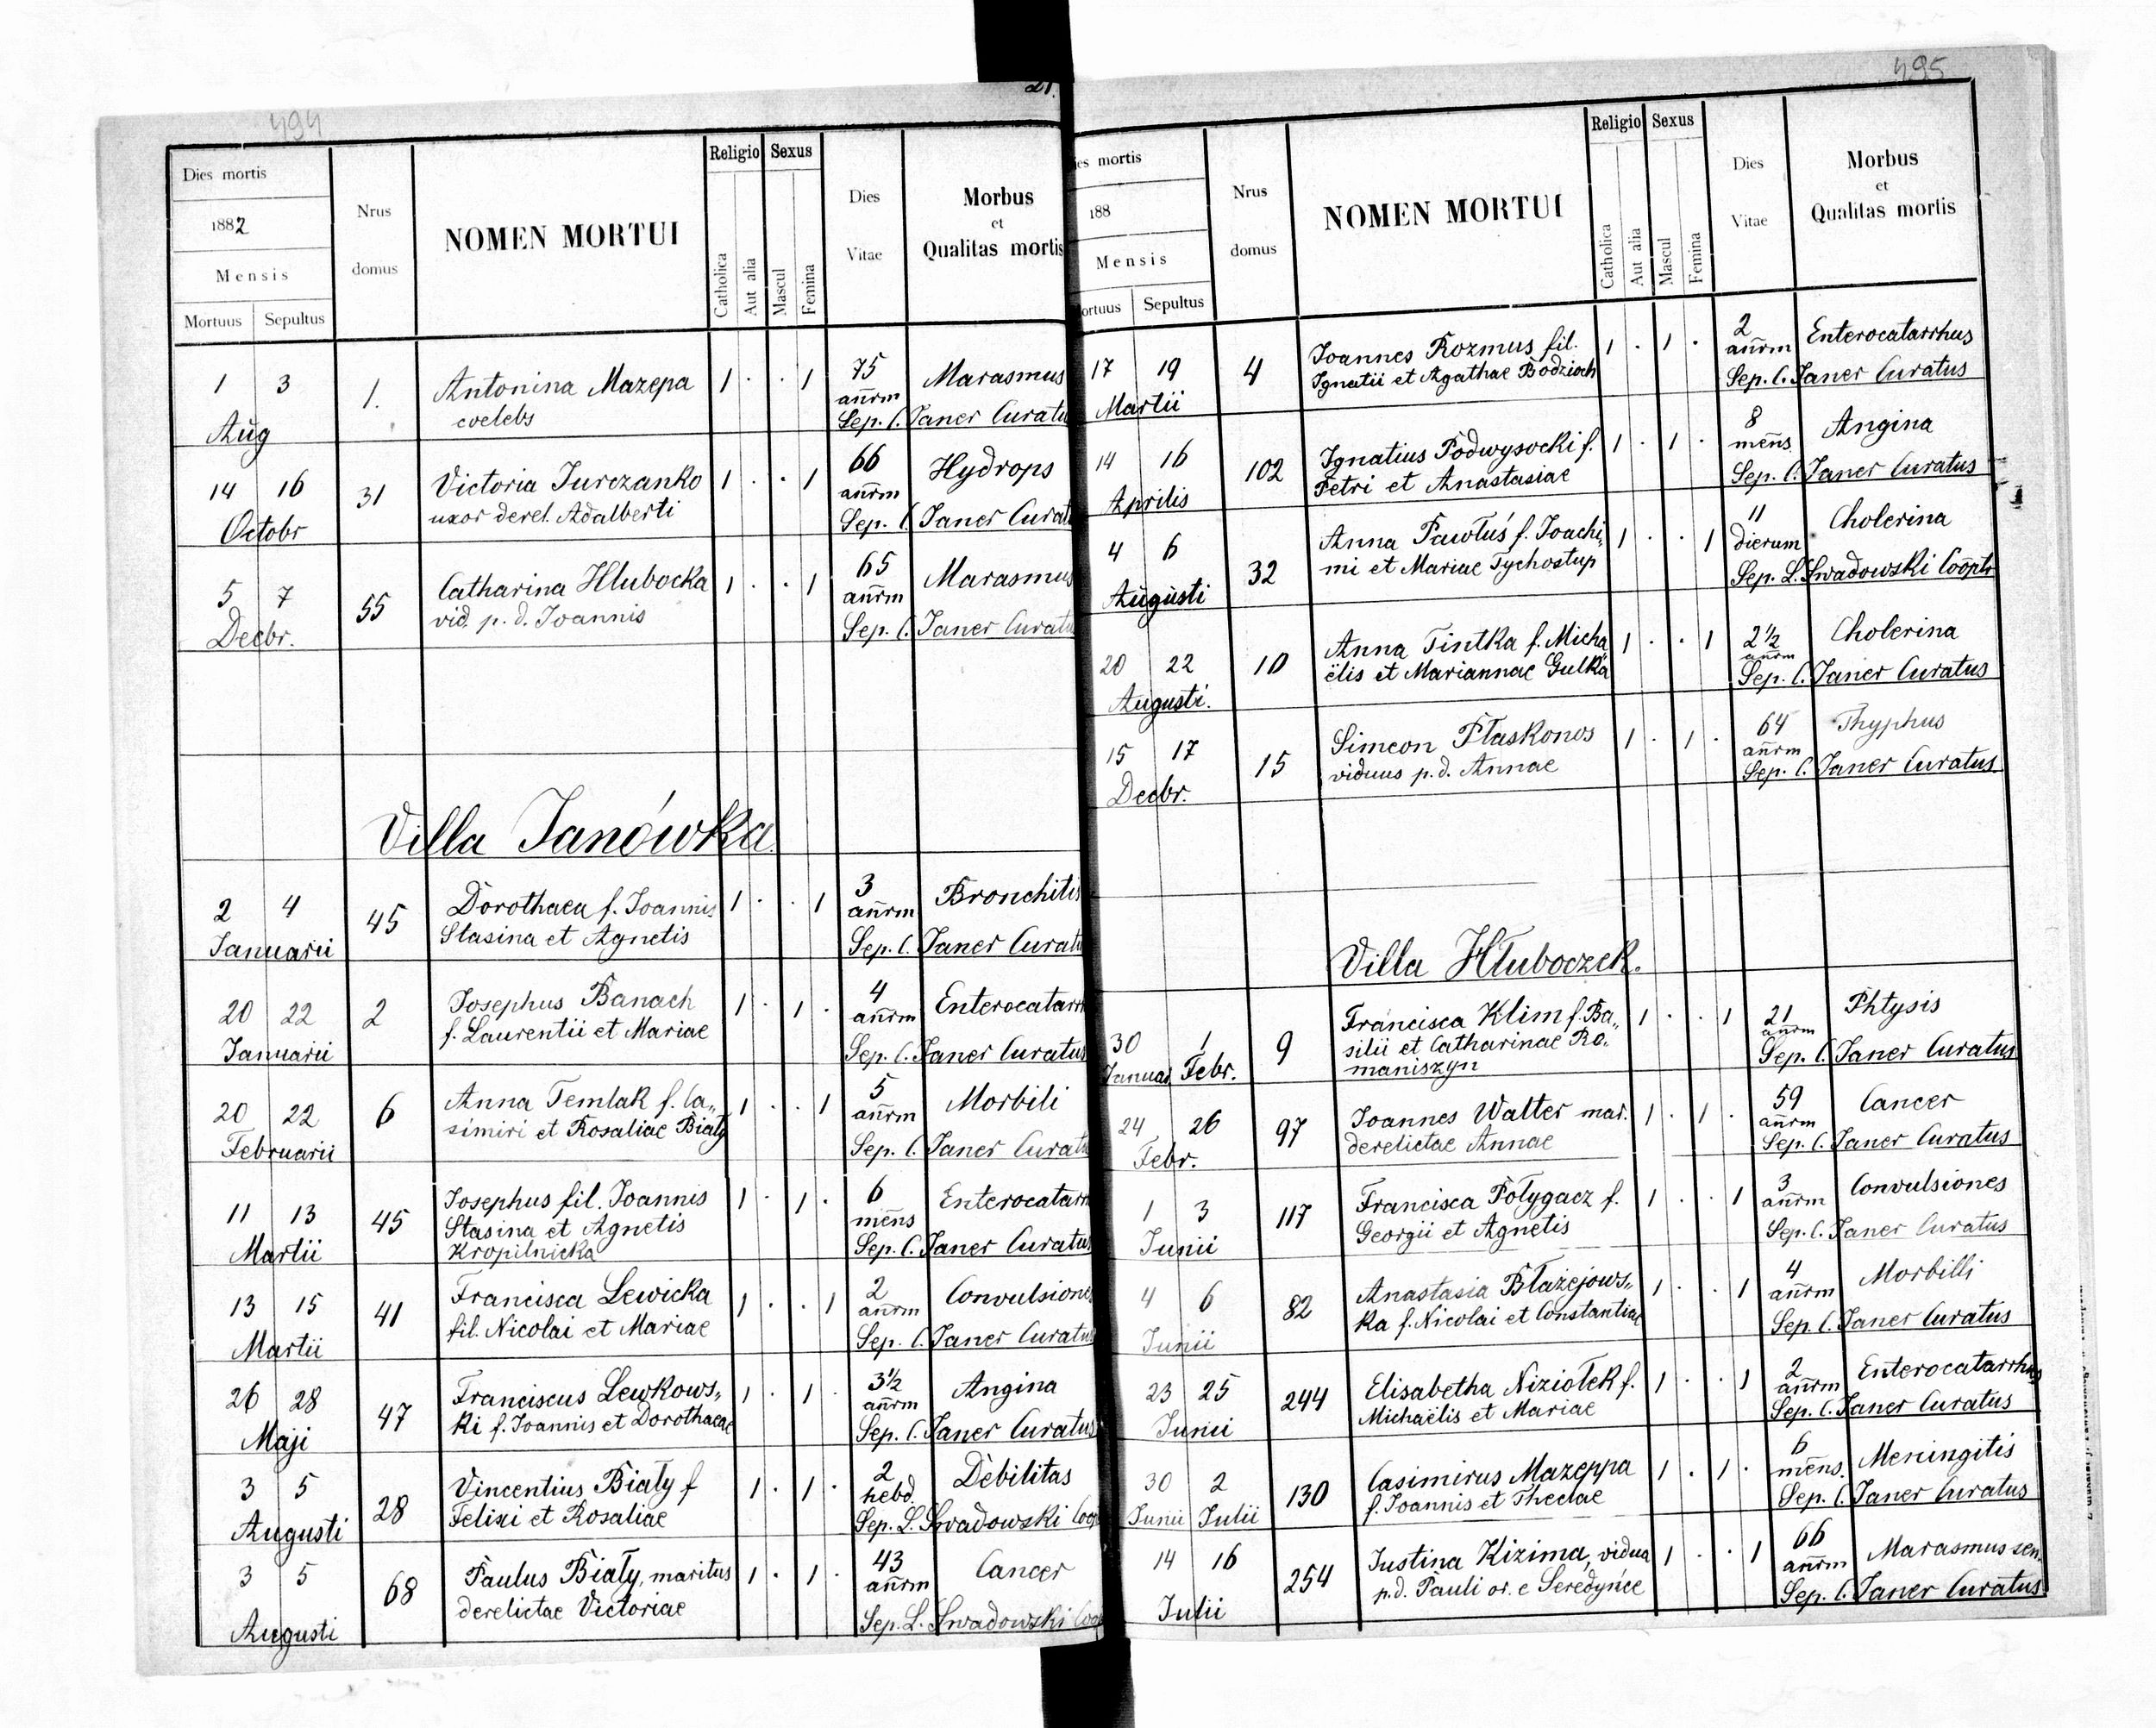 494
21.
Dies mortis
1882
Mensis
Mortuus Sepultus
Nrus domus
NOMEN MORTUI
Religio
Catholica
Aut alia
Sexus
Mascul
Femina
Dies Vitae
Morbus
et
Qualitas mortis
1 3 1. Antonina Mazepa 1 . . 1 75 Marasmus
Aug coelebs añrm
Sep. C. Janer Curatu
14 16 31 Victoria Jurczanko 1 . . 1 66 Hydrops
Octobr uxor derel. Adalberti añrm
Sep. C. Janer Curat
5 7 55 Catharina Hlubocka 1 . . 1 65 Marasmus
Decbr. vid. p. d. Joannis añrm
Sep. C. Janer Curatu
Villa Janówka
2 4 45 Dorothaea f. Joannis 1 . . 1 3 Bronchitis
Januarii Stasina et Agnetis añrm
Sep. C. Janer Curatu
20 22 2 Josephus Banach 1 . 1 . 4 Enterocatarrh
Januarii f. Laurentii et Mariae añrm
Sep. C. Janer Curatus
20 22 6 Anna Temlak f. Ca„ 1 . . 1 5 Morbili
Februarii simiri et Rosaliae Biały añrm
Sep. C. Janer Curatu
11 13 45 Josephus fil. Joannis 1 . 1 . 6 Enterocatarr
Martii Stasina et Agnetis mens
Kropilnicka Sep. C. Janer Curatus
13 15 41 Francisca Lewicka 1 . . 1 2 Convulsiones
Martii fil. Nicolai et Mariae añrm
Sep. C. Janer Curatus
26 28 47 Franciscus Lewkows„ 1 . 1 . 3½ Angina
Maji ki f. Joannis et Dorothaeae añrm
Sep. C. Janer Curatus
3 5 28 Vincentius Biały f 1 . 1 . 2 Debilitas
Augusti Felixi et Rosaliae hebd.
Sep. L. Swadowski Coop
3 5 68 Paulus Biały, maritus 1 . 1 . 43 Cancer
Augusti derelictae Victoriae añrm
Sep. L. Swadowski Coo
495
ies mortis
188
Mensis
ortuus Sepultus
Nrus domus
NOMEN MORTUI
Religio
Catholica
Aut alia
Sexus
Mascul
Femina
Dies Vitae
Morbus
et
Qualitas mortis
17 19 4 Joannes Rozmus fil. 1 . 1 . 2 Enterocatarrhus
Martii Ignatii et Agathae Bodzioch añrm
Sep. C. Janer Curatus
14 16 102 Ignatius Podwysocki f. 1 . 1 . 8 Angina
Aprilis Petri et Anastasiae mens
Sep. C. Janer Curatus
4 6 32 Anna Pawluś f. Joachi„ 1 . . 1 11 Cholerina
Augusti mi et Mariae Tychostup dierum
Sep. L. Swadowski Cooptr
20 22 10 Anna Tintka f. Micha 1 . . 1 2½ Cholerina
Augusti. ëlis et Mariannae Gulka añrm
Sep. C. Janer Curatus
15 17 15 Simeon Płaskonos 1 . 1 . 64 Thyphus
Decbr. viduus p. d. Annae añrm
Sep. C. Janer Curatus.
Villa Hłuboczek.
30 1 9 Francisca Klim f. Ba„ 1 . . 1 21 Phtysis
Januar Febr. silii et Catharinae Ro„ añrm
maniszyn Sep. C. Janer Curatus
24 26 97 Joannes Walter mar. 1 . 1 . 59 Cancer
Febr. derelictae Annae añrm
Sep. C. Janer Curatus
1 3 117 Francisca Połygacz f. 1 . . 1 3 Convulsiones
Junii Georgii et Agnetis añrm
Sep. C. Janer Curatus
4 6 82 Anastasia Błażejows„ 1 . . 1 4 Morbilli
Junii ka f. Nicolai et Constantiae añrm
Sep. C. Janer Curatus
23 25 244 Elisabetha Niziołek f. 1 . . 1 2 Enterocatarrhus
Junii Michaëlis et Mariae añrm
Sep. C. Janer Curatus
30 2 130 Casimirus Mazeppa 1 . 1 . 6 Meningitis
Junii Julii f. Joannis et Theclae mens.
Sep. C. Janer Curatus
14 16 254 Justina Kizima, vidua 1 . . 1 66 Marasmus sen.
Julii p. d. Pauli or. e Seredyńce añrm
Sep. C. Janer Curatus